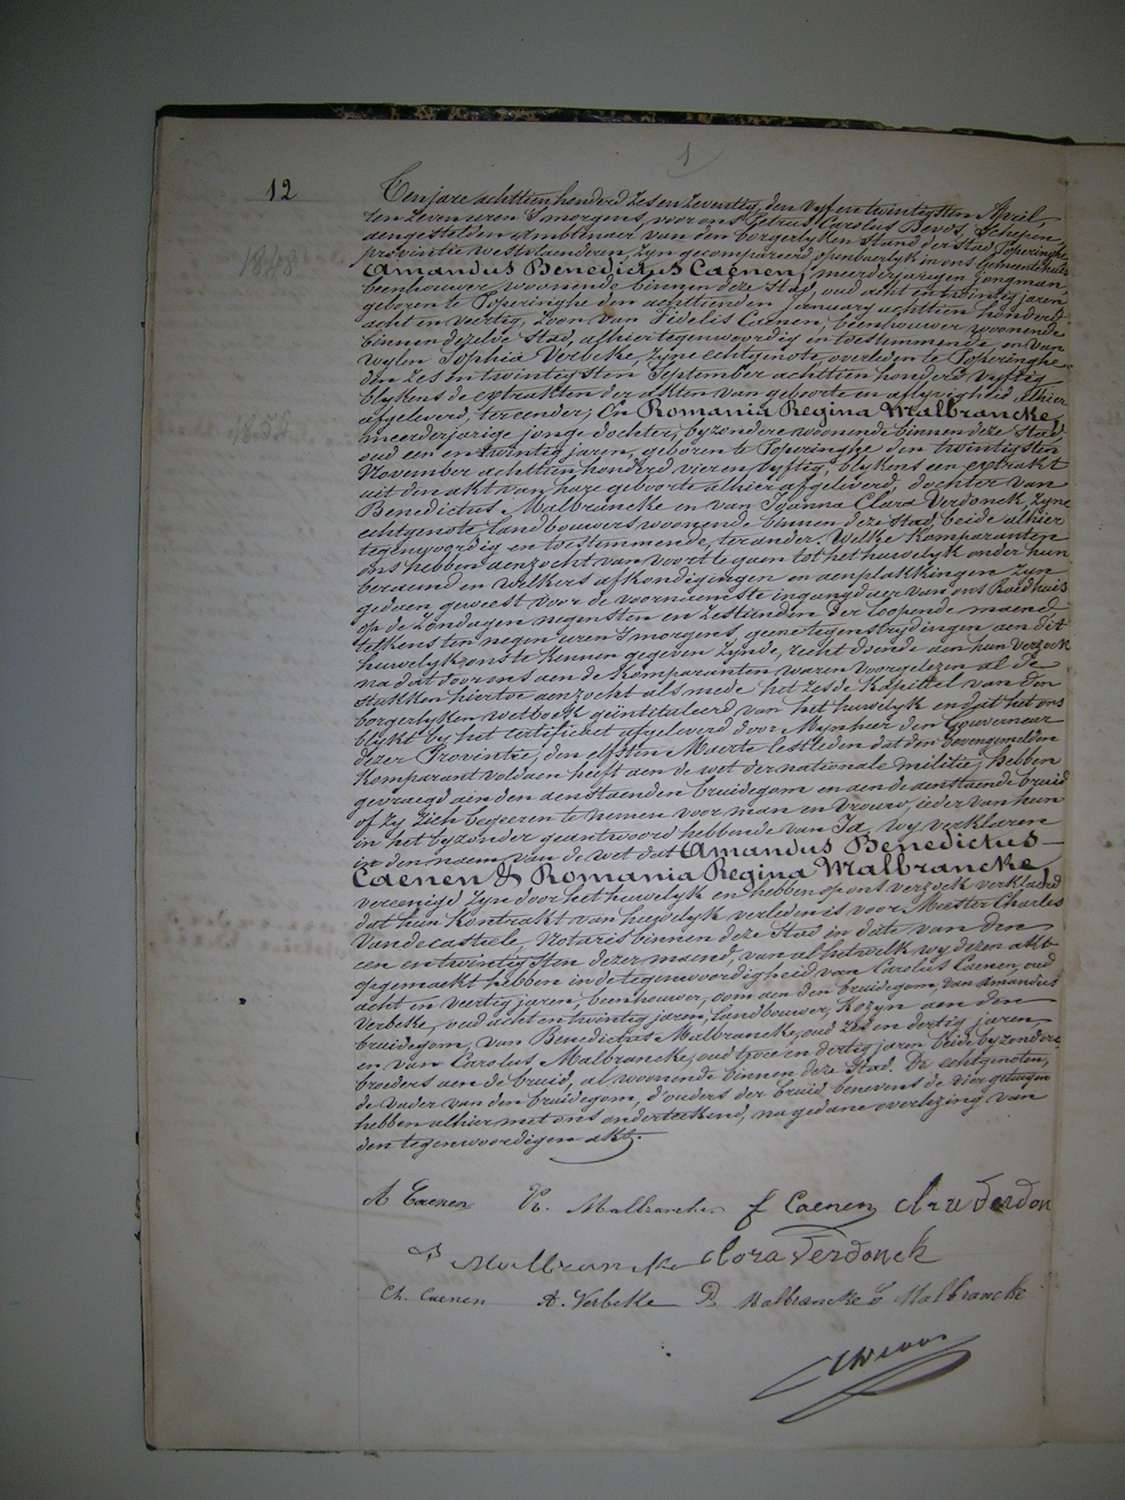 1
12
Ten jare achttien honderd zes en zeventig, den vyf en twintigsten April,
ten zeven uren 's morgens, voor ons Petrus Carolus Devos, Schepen,
aengestelden Ambtenaer van den borgerlyken Stand der stad Poperinghe,
provintie westvlaenderen, zyn gecompareerd openbaerlyk in ons Gemeentehuis
1848
Amandus Benedictus Caenen, meerderjarigen jongman,
beenhouwer, woonende binnen deze Stad, oud acht en twintig jaren
geboren te Poperinghe den achttienden January achttien honderd
acht en veertig, zoon van Fidelis Caenen, beenhouwer woonende
binnen dezelve Stad, alhier tegenwoordig en toestemmende, en van
wylen Sophia Verbeke, zyne echtgenote, overleden te Poperinghe
den zes en twintigsten September achttien honderd vyftig
blykens de extrakten der akten van geboorte en aflyvigheid alhier
afgeleverd, ter eender; En Romania Regina Malbrancke,
1854
meerderjarige jonge dochter, byzondere woonende binnen deze Stad,
oud een en twintig jaren, geboren te Poperinghe den twintigsten
November achttien honderd vier en vyftig, blykens een extrakt
uit den akt van hare geboorte alhier afgeleverd, dochter van
Benedictus Malbrancke en van Joanna Clara Verdonck, zyne
echtgenote, landbouwers woonende binnen deze Stad, beide alhier
tegenwoordig en toestemmende, ter ander. Welke Komparanten
ons hebben aenzocht van voort te gaen tot het huwelyk onder hun
beraemd en welkers afkondigingen en aenplakkingen zyn
gedaen geweest voor de voornaemste ingangdeur van ons Raedhuis
op de zondagen negensten en zestienden der loopende maend,
telkens ten negen uren 's morgens, geene tegenstrydingen aen dit
huwelyk ons te kennen gegeven zynde, recht doende aen hun verzoek
na dat door ons aen de Komparanten waren voorgelezen al de
stukken hiertoe aenzocht als mede het zesde Kapittel van den
borgerlyken wetboek geïntitaleerd van het huwelyk en dat het ons
blykt by het certificaet afgeleverd door Mynheer den Gouverneur
dezer Provintie, den elfsten Maerte lestleden dat den bovengemelden
Komparant voldaen heeft aen de wet der nationale militie; hebben
gevraegd aen den aenstaenden bruidegom en aen de aenstaende bruid
of zy zich begeeren te nemen voor man en vrouw, ieder van hun
in het byzonder geantwoord hebbende van Ja, wy verklaren
in den naem van de wet dat Amandus Benedictus
Caenen & Romania Regina Malbrancke,
vereenigd zyn door het huwelyk en hebben op ons verzoek verklaerd
dat hun Kontrakt van huwelyk verleden is voor Meester Charles
Vandecasteele, Notaris binnen deze Stad in date van den
een en twintigsten dezer maend, van al hetwelk wy dezen akt
opgemaekt hebben in de tegenwoordigheid van Carolus Caenen, oud
acht en veertig jaren, beenhouwer, oom aen den bruidegom, van Amandus
Verbeke, oud acht en twintig jaren, landbouwer, Kozyn aen den
bruidegom, van Benedictus Malbrancke, oud zes en dertig jaren,
en van Carolus Malbrancke, oud twee en dertig jaren beide byzondere,
broeders aen de bruid, al woonende binnen deze Stad. De echtgenoten,
de vader van den bruidegom, d'ouders der bruid benevens de vier getuigen
hebben alhier met ons onderteekend, na gedane overlezing van
den tegenwoordigen akt.
A Caenen R. Malbrancke f Caenen Clara Verdon
B Malbrancke Clora Verdonck
Ch. Caenen A. Verbeke B Malbrancke C Malbrancke